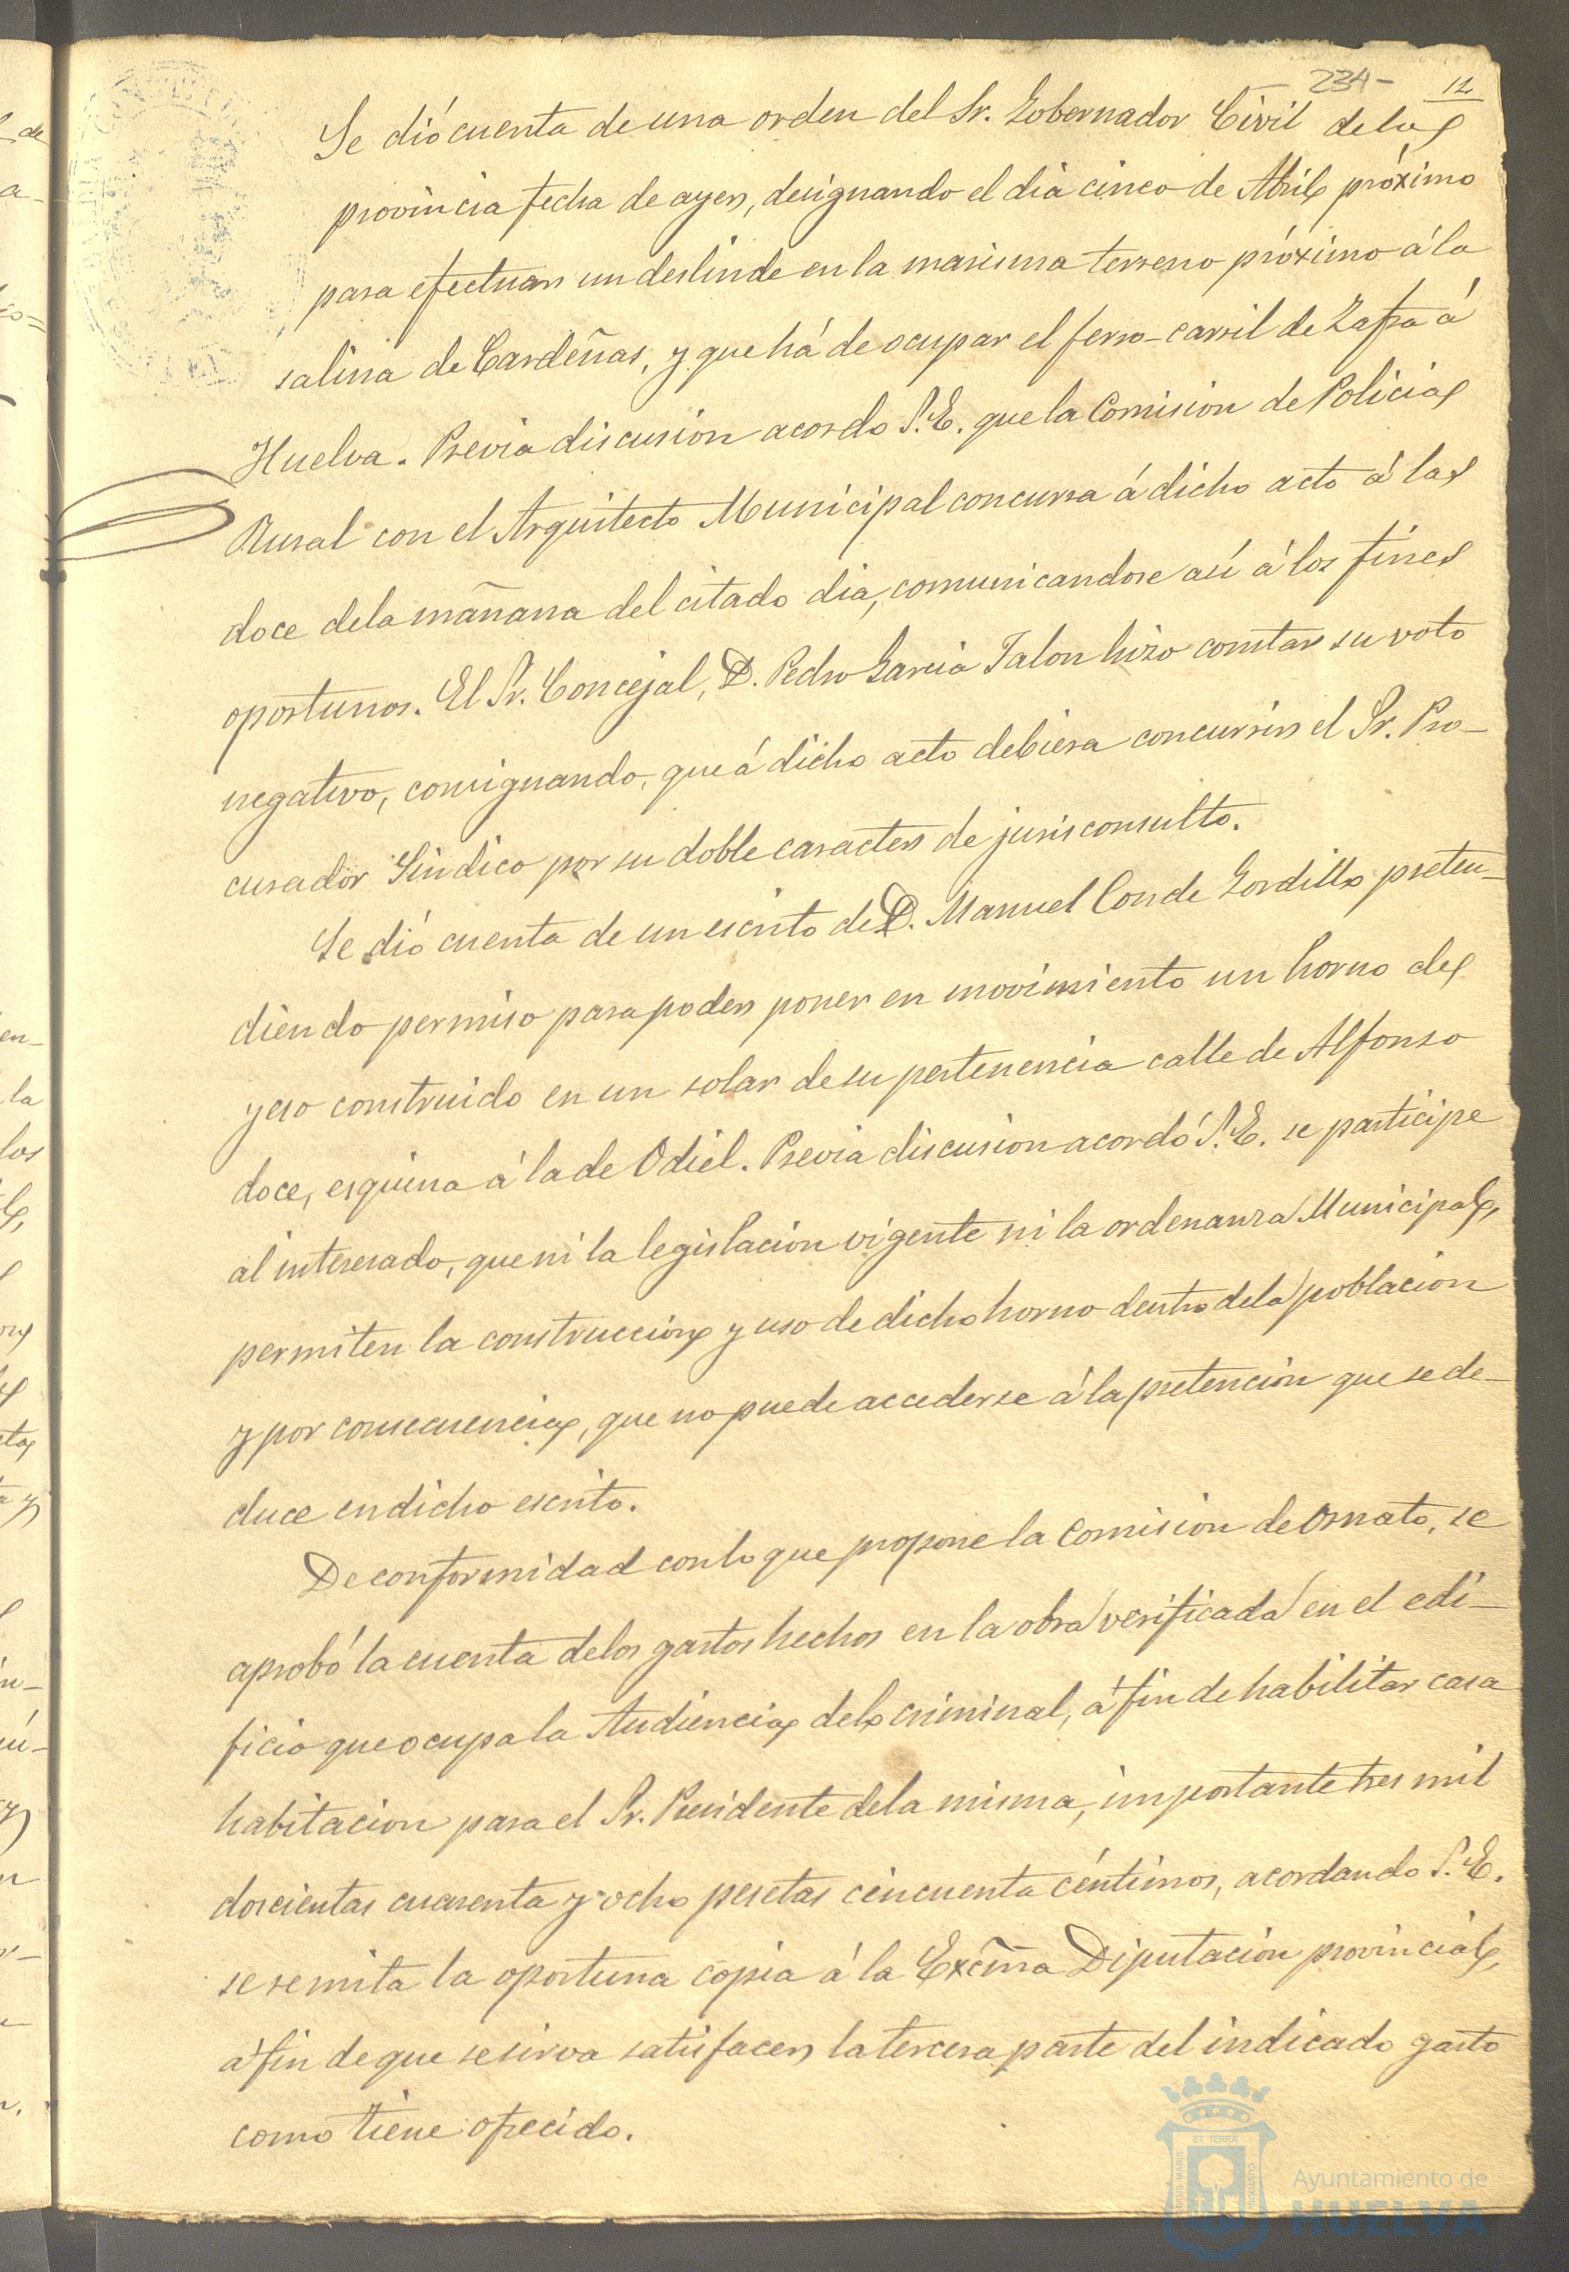 234- 12
Se dió cuenta de una orden del Sr. Gobernador Civil de la
provincia fecha de ayer, designando el dia cinco de Abril próximo
para efectuar un deslinde en la marisma terreno próximo á la
salina de Cardeñas, y que há de ocupar el ferro-carril de Zafra á
Huelva. Previa discusión acordo S.E. que la Comisión de Policia
Rural con el Arquitecto Municipal concurra á dicho acto á las
doce de la mañana del citado dia, comunicandose así á los fines
oportunos. El Sr. Concejal, D. Pedro Garcia Jalon hizo constar su voto
negativo, consignando, que á dicho acto debiera concurrir el Sr. Pro-
curador Sindico por su doble caracter de jurisconsulto.
Se dió cuenta de un escrito de D. Manuel Conde Gordillo preten-
diendo permiso para poder poner en movimiento un horno de
yeso construido en un solar de su pertenencia calle de Alfonso
doce, esquina á la de Odiel. Previa discusion acordó S.E. se participe
al interesado, que ni la legislación vigente ni la ordenanza Municipal,
permiten la construcción y uso de dicho horno dentro de la población
y por consecuencia, que no puede accederse á la pretención que se de-
duce en dicho escrito.
De conformidad con lo que propone la Comisión de Ornato, se
aprobó la cuenta de los gastos hechos en la obra verificada en el edi-
ficio que ocupa la Audiencia de lo criminal, á fin de habilitar casa
habitacion para el Sr. Presidente de la misma, importante tres mil
doscientas cuarenta y ocho pesetas cincuenta céntimos, acordando S.E.
se remita la oportuna copia á la Excma Diputación provincial,
á fin de que se sirva satisfacer la tercera parte del indicado gasto
como tiene ofrecido.
Ayuntamiento de
HUELVA